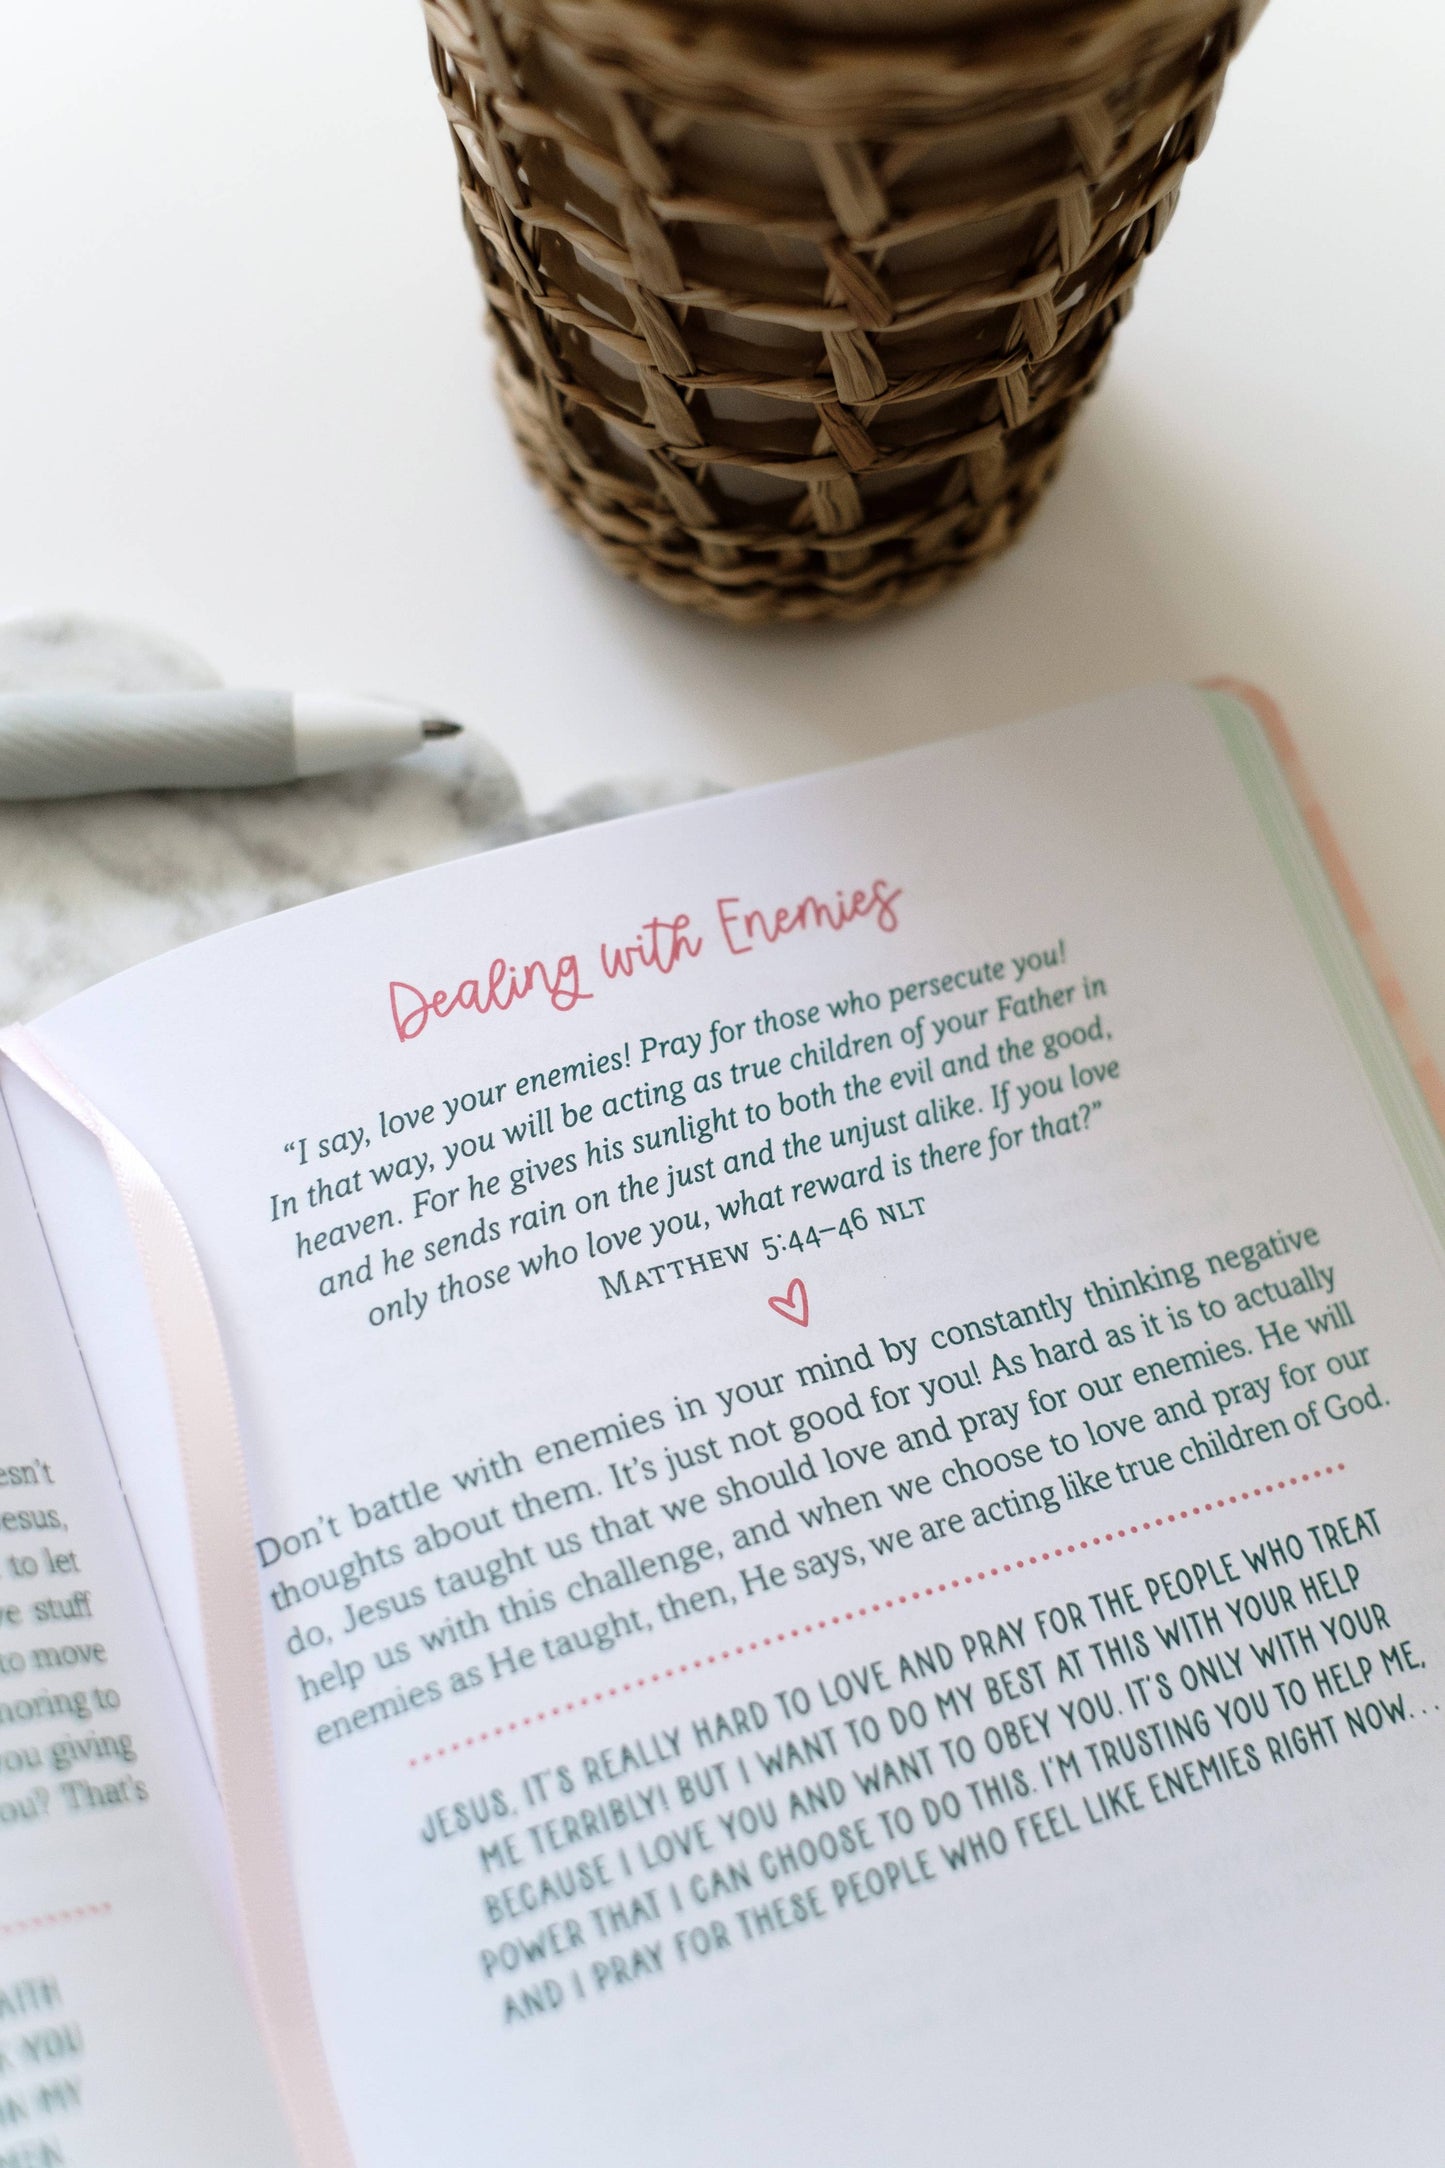 Dealing with Enemies
“I say, love your enemies! Pray for those who persecute you!
In that way, you will be acting as true children of your Father in
heaven. For he gives his sunlight to both the evil and the good,
and he sends rain on the just and the unjust alike. If you love
only those who love you, what reward is there for that?”
MATTHEW 5:44–46 NLT
Don’t battle with enemies in your mind by constantly thinking negative
thoughts about them. It’s just not good for you! As hard as it is to actually
do, Jesus taught us that we should love and pray for our enemies. He will
help us with this challenge, and when we choose to love and pray for our
enemies as He taught, then, He says, we are acting like true children of God.
JESUS, IT’S REALLY HARD TO LOVE AND PRAY FOR THE PEOPLE WHO TREAT
ME TERRIBLY! BUT I WANT TO DO MY BEST AT THIS WITH YOUR HELP
BECAUSE I LOVE YOU AND WANT TO OBEY YOU. IT’S ONLY WITH YOUR
POWER THAT I CAN CHOOSE TO DO THIS. I’M TRUSTING YOU TO HELP ME,
AND I PRAY FOR THESE PEOPLE WHO FEEL LIKE ENEMIES RIGHT NOW. . .
to let
stuff
to move
you giving
That’s
YOU
MY